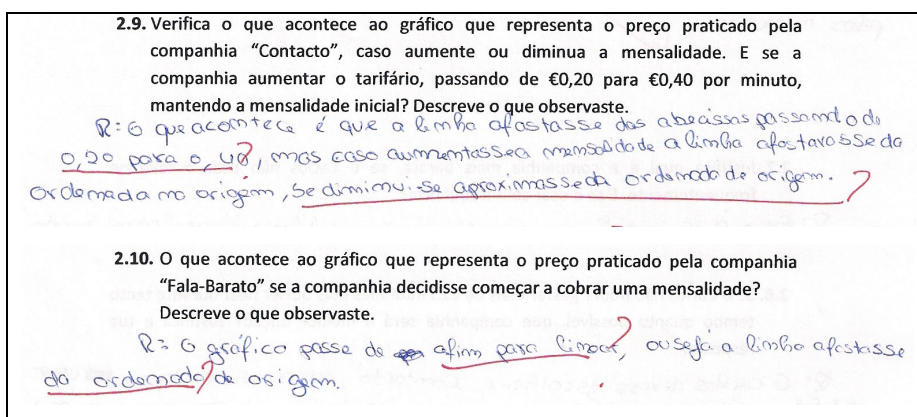 2.9. Verifica o que acontece ao gráfico que representa o preço praticado pela
companhia “Contacto”, caso aumente ou diminua a mensalidade. E se a
companhia aumentar o tarifário, passando de €0,20 para €0,40 por minuto,
mantendo a mensalidade inicial? Descreve o que observaste.
R: O que acontece é que a linha afastasse das abcissas passando de
0,20 para 0,40?, mas caso aumentassea mensalidade a linha afastarosse da
ordenada na origem, se diminui-se aproximasseda ordenada de origem. ?
2.10. O que acontece ao gráfico que representa o preço praticado pela companhia
“Fala-Barato” se a companhia decidisse começar a cobrar uma mensalidade?
Descreve o que observaste.
R: O gráfico passe de afim para linear?, ou seja a linha afastasse
da ordenada? de origem.